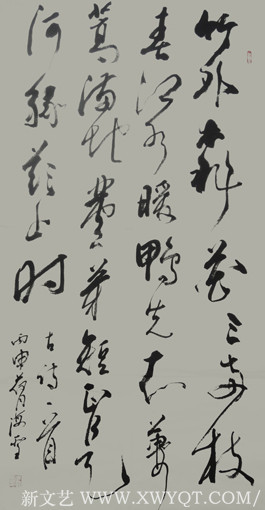 竹外桃花三两枝
春江水暖鴨先知蔞
蒿满地蘆芽短正是
河豚欲上时
古诗一首
丙申
新文艺 - WWW.XWYQT.COM/